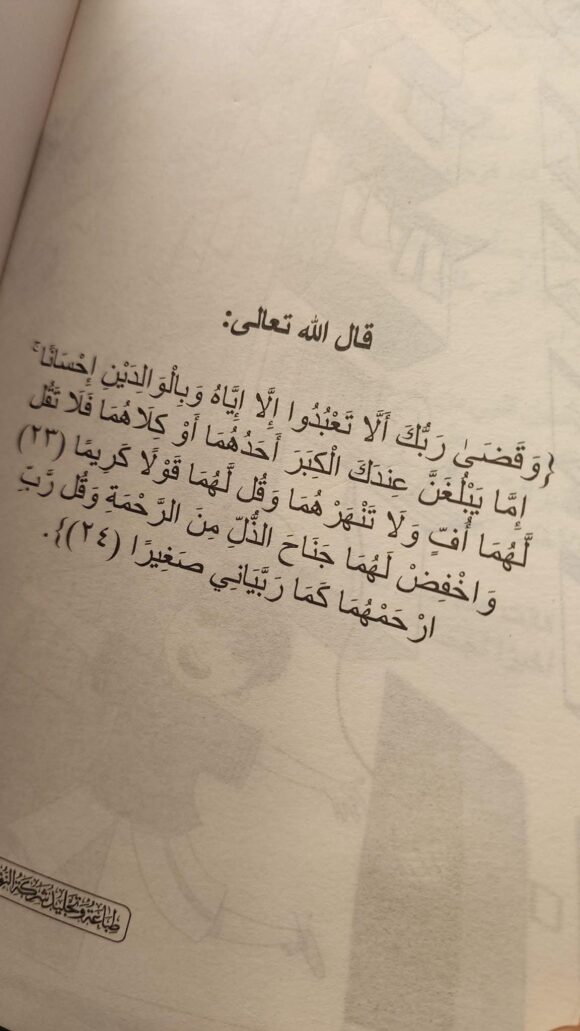 قال الله تعالى:
{وَقَضَىٰ رَبُّكَ أَلَّا تَعْبُدُوا إِلَّا إِيَّاهُ وَبِالْوَالِدَيْنِ إِحْسَانًا ۚ
إِمَّا يَبْلُغَنَّ عِندَكَ الْكِبَرَ أَحَدُهُمَا أَوْ كِلَاهُمَا فَلَا تَقُل
لَّهُمَا أُفٍّ وَلَا تَنْهَرْهُمَا وَقُل لَّهُمَا قَوْلًا كَرِيمًا (٢٣)
وَاخْفِضْ لَهُمَا جَنَاحَ الذُّلِّ مِنَ الرَّحْمَةِ وَقُل رَّبِّ
ارْحَمْهُمَا كَمَا رَبَّيَانِي صَغِيرًا (٢٤)}.
طباعة وتجليد شركة